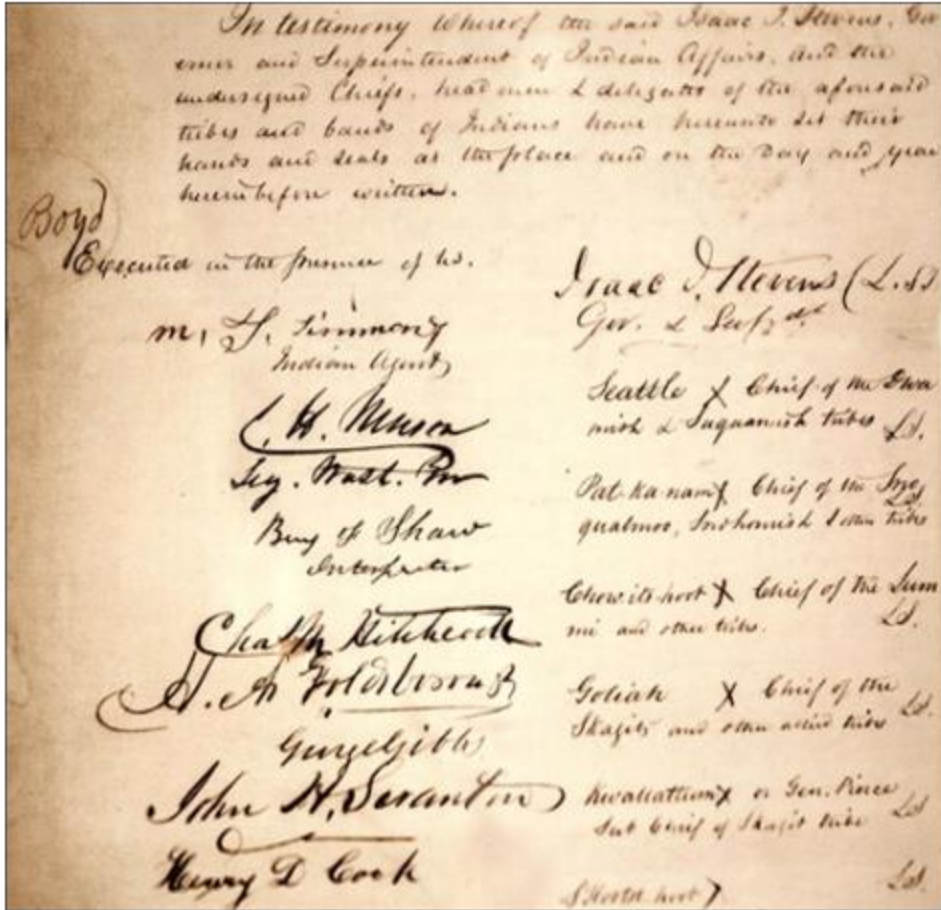 In testimony whereof the said Isaac I. Stevens, Gov
ernor and Superintendent of Indian Affairs, and the
undersigned Chiefs, head men & delegates of the aforesaid
tribes and bands of Indians have hereunto set their
hands and seals at the place and on the day and year
herein before written.
Boyd
Executed in the presence of us.
M. T. Simmons
Indian Agent
C. H. Mason
Secy. Wash. Ter
Benj F Shaw
Interpreter
Chas M Hitchcock
H. A Goldsborough
George Gibbs
John H. Scranton
Henry D Cock
Isaac I. Stevens (L.S)
Gov. & Supt
Seattle X Chief of the Dwa
mish & Suquamish tribes L.S.
Pat-ka-nam X Chief of the Sno
qualmoo, Snohomish & other tribes L.S.
Chow-its-hoot X Chief of the Lum
mi and other tribes. L.S.
Goliah X Chief of the
Skagits and other allied tribes L.S.
Kwallattum X or Gen. Pierce
Sub Chief of Skagit tribe L.S
hoot L.S.